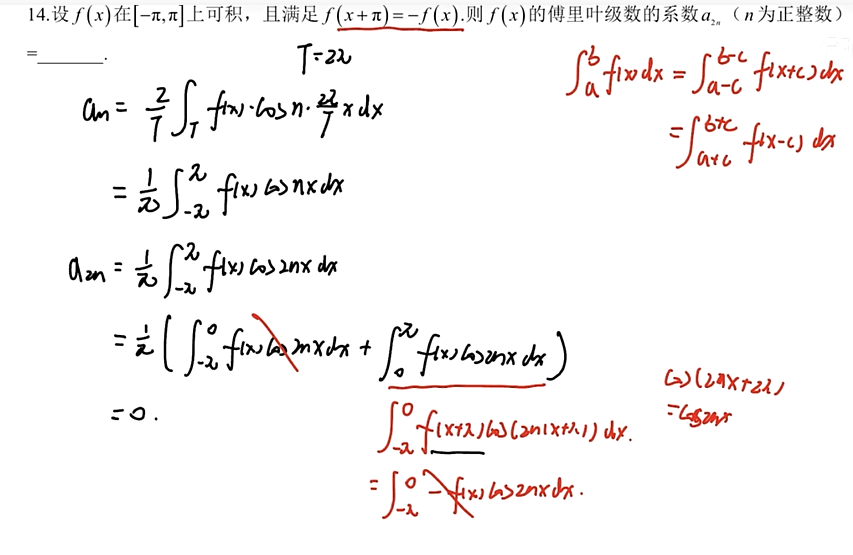 14.设 f(x)在[-π,π]上可积，且满足 f(x+π)=-f(x).则 f(x)的傅里叶级数的系数 a₂ₙ（n 为正整数）
=______.
T=2π
aₙ = 2/T ∫_T f(x)·cos n·2π/T x dx
= 1/π ∫_{-π}^{π} f(x) cos nx dx
a₂ₙ = 1/π ∫_{-π}^{π} f(x) cos 2nx dx
= 1/π ( ∫_{-π}^{0} f(x) cos 2nx dx + ∫_{0}^{π} f(x) cos 2nx dx )
= 0.
∫_a^b f(x) dx = ∫_{a-c}^{b-c} f(x+c) dx
= ∫_{a+c}^{b+c} f(x-c) dx
∫_{-π}^{0} f(x+π) cos(2n(x+π)) dx.
= ∫_{-π}^{0} -f(x) cos 2nx dx.
cos(2nx+2π)
=cos2nx